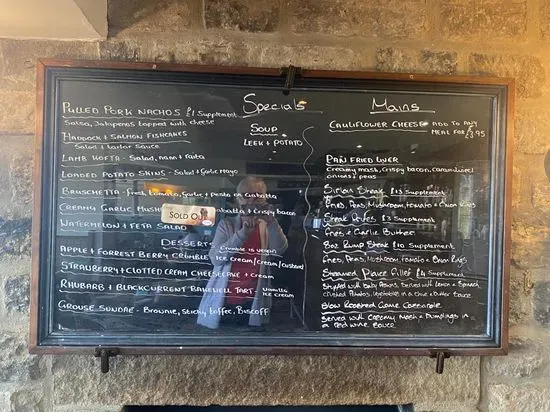 Specials
PULLED PORK NACHOS £1 Supplement
Salsa, Jalapenos topped with cheese
HADDOCK + SALMON FISHCAKES
Salad + tartar sauce
LAMB KOFTA - Salad, naan + raita
LOADED POTATO SKINS - Salad + Garlic Mayo
BRUSCHETTA - fresh tomato, Garlic + pesto on ciabatta
CREAMY GARLIC + Crispy bacon
SOLD
WATERMELON + FETA SALAD
SOUP
LEEK + POTATO
DESSERTS
APPLE + FORREST BERRY CRUMBLE Crumble is vegan
Ice Cream/cream/custard
STRAWBERRY + CLOTTED CREAM CHEESECAKE + Cream
RHUBARB + BLACKCURRENT BAKEWELL TART - Vanilla Ice Cream
GROUSE SUNDAE - Brownie, Sticky toffee, Biscoff
Mains
CAULIFLOWER CHEESE - ADD TO ANY
MEAL FOR £3.95
PAN FRIED LIVER
Creamy mash, Crispy bacon, caramelised
onions + peas
Sirloin Steak £13 Supplement
Fries, Peas, Mushroom, tomato + Onion Rings
Steak Frites £3 Supplement
Fries + Garlic Butter
8oz Rump Steak £10 Supplement
Fries, Peas, Mushroom, Tomato + Onion Rings
Steamed Plaice Fillet Supplement
Served with Lemon + Spinach
Crushed Potatoes, Vegetables in a Butter Sauce
Slow Roasted Game Casserole
Served with Creamy Mash + Dumplings in
a red wine sauce